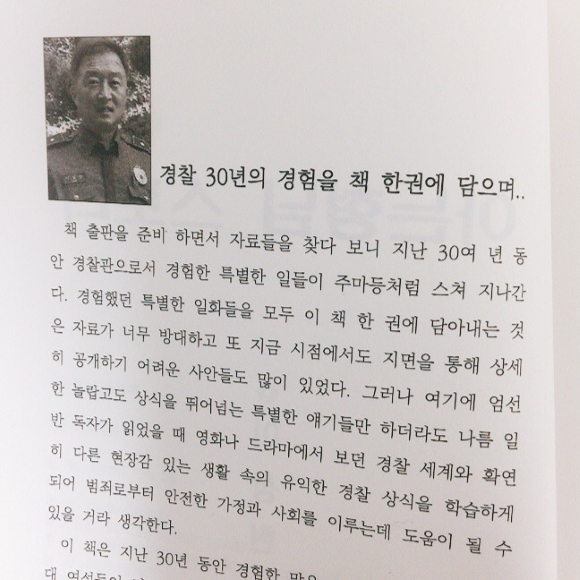 경찰 30년의 경험을 책 한권에 담으며..
책 출판을 준비 하면서 자료들을 찾다 보니 지난 30여 년 동
안 경찰관으로서 경험한 특별한 일들이 주마등처럼 스쳐 지나간
다. 경험했던 특별한 일화들을 모두 이 책 한 권에 담아내는 것
은 자료가 너무 방대하고 또 지금 시점에서도 지면을 통해 상세
히 공개하기 어려운 사안들도 많이 있었다. 그러나 여기에 엄선
한 놀랍고도 상식을 뛰어넘는 특별한 얘기들만 하더라도 나름 일
반 독자가 읽었을 때 영화나 드라마에서 보던 경찰 세계와 확연
히 다른 현장감 있는 생활 속의 유익한 경찰 상식을 학습하게
되어 범죄로부터 안전한 가정과 사회를 이루는데 도움이 될 수
있을 거라 생각한다.
이 책은 지난 30년 동안 경험한